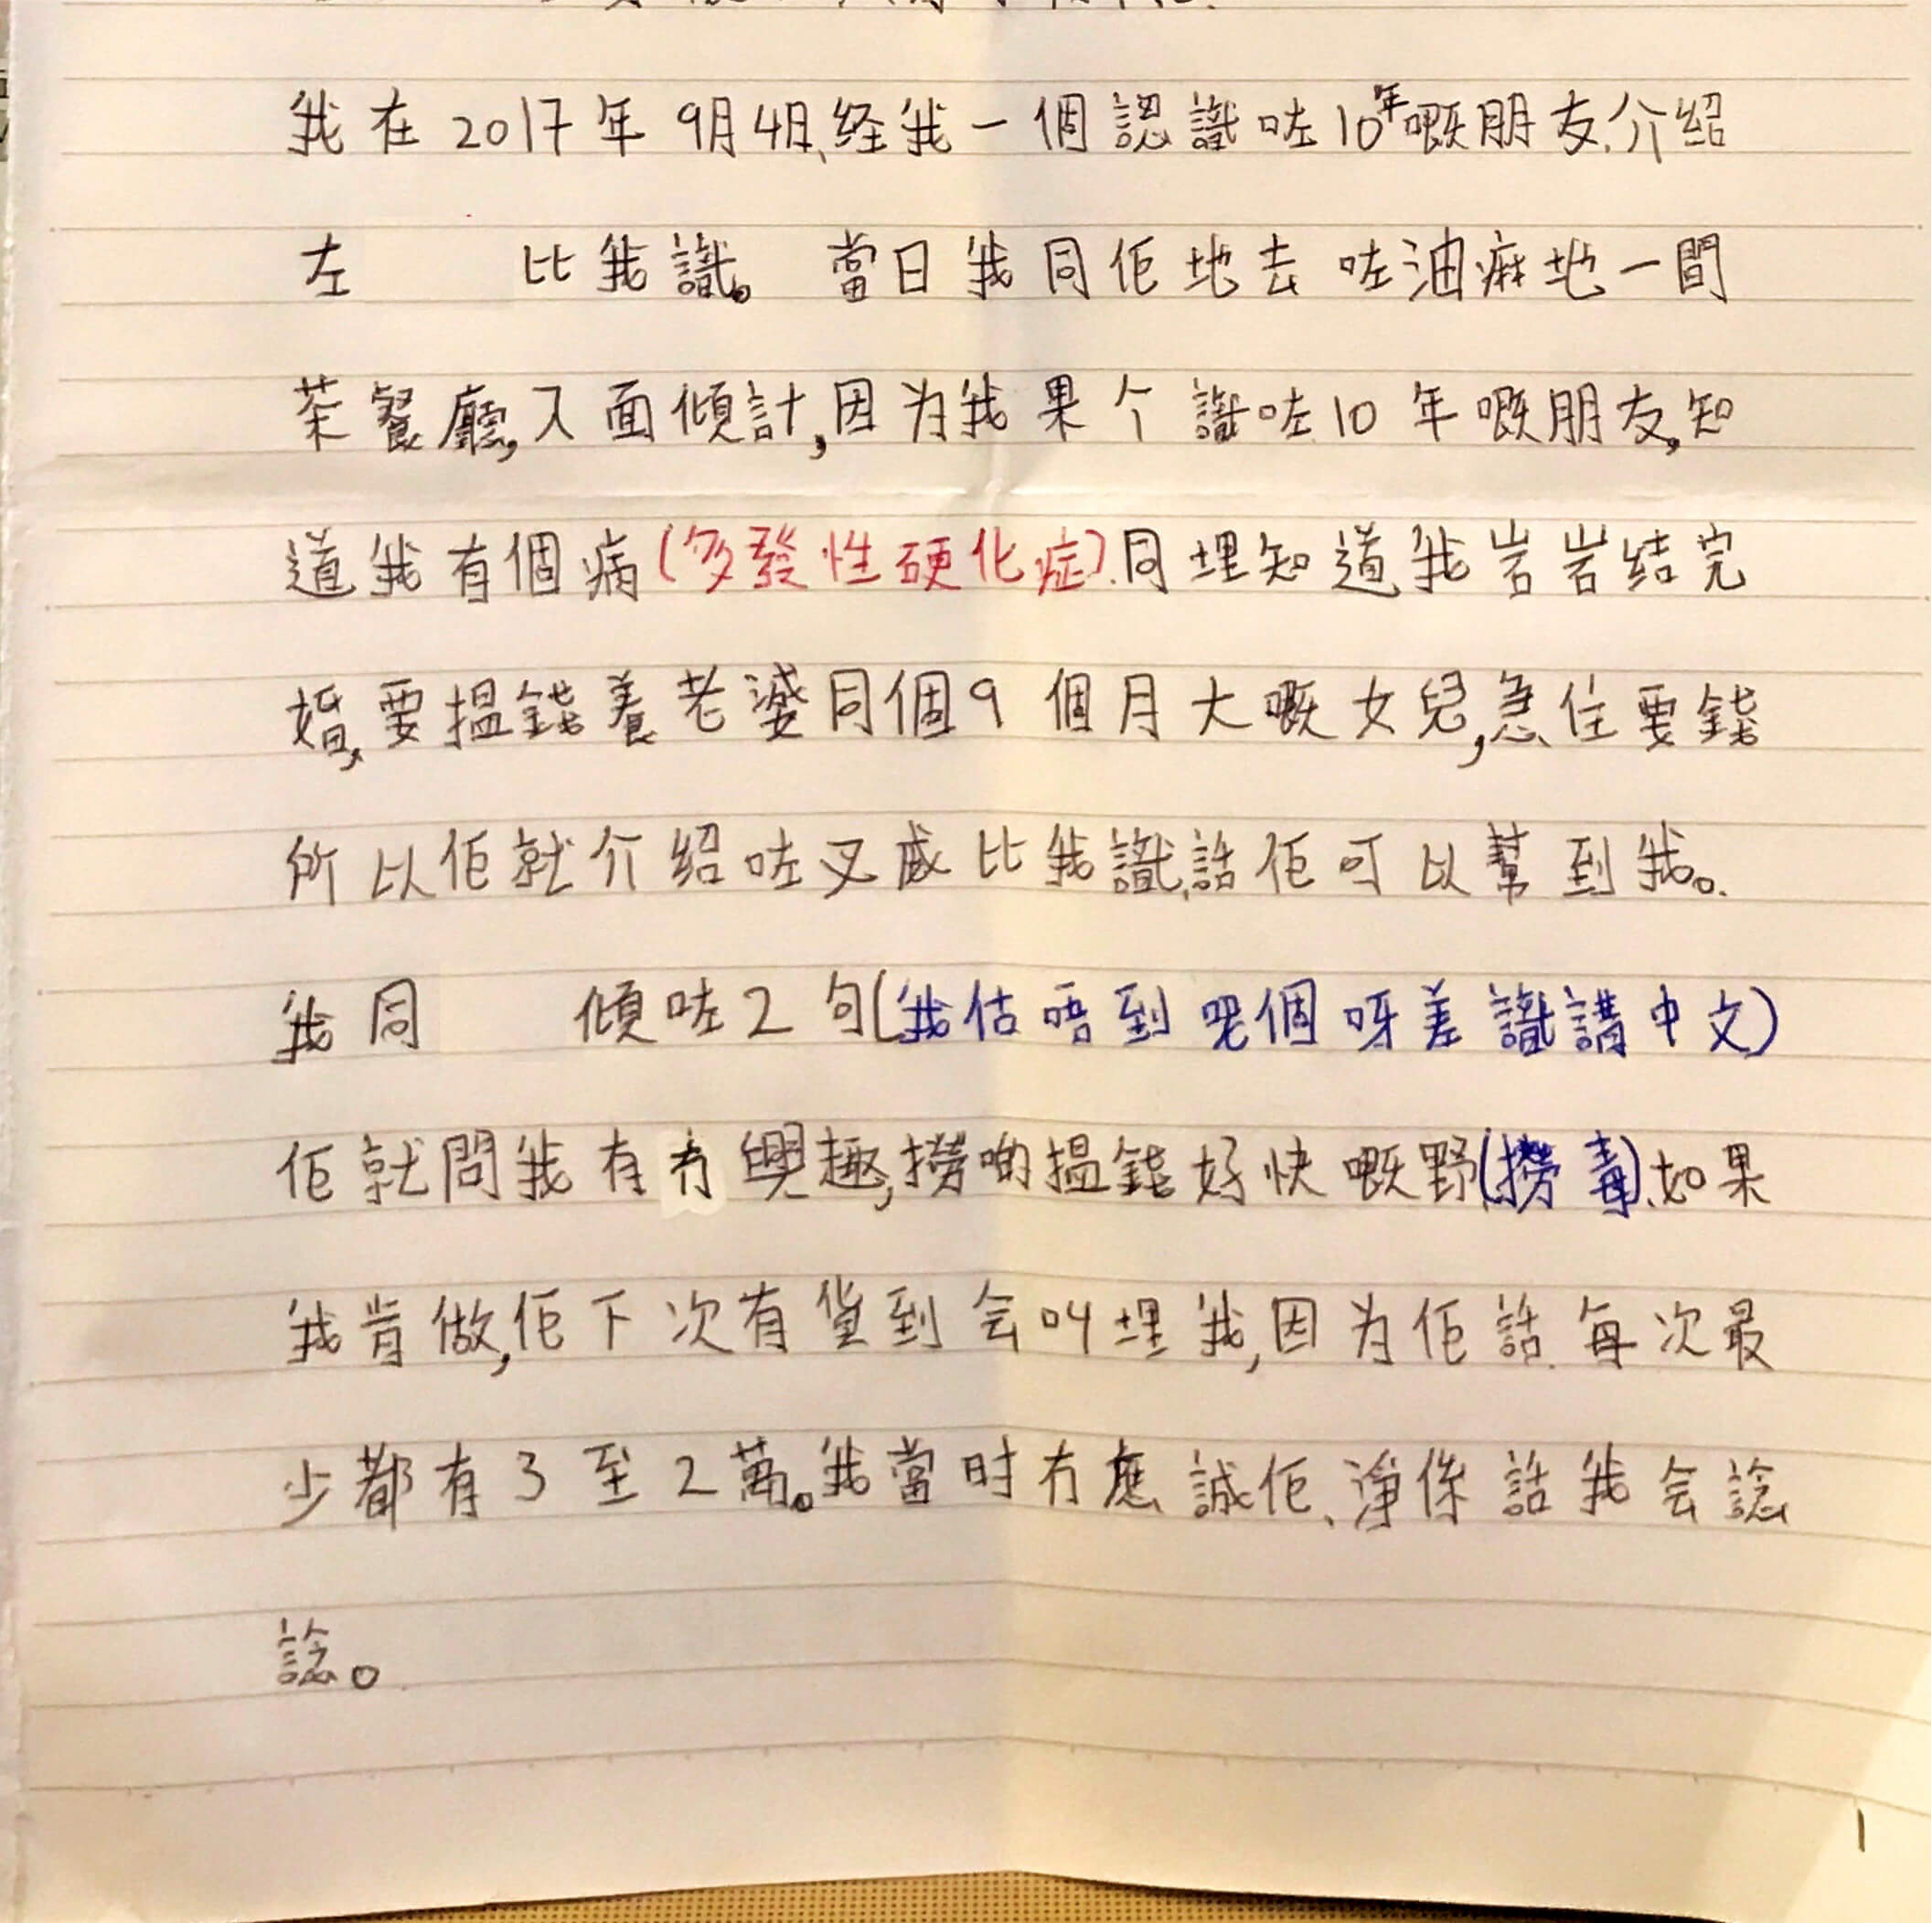 我在2017年9月4日、经我一個認識咗10年嘅朋友.介紹
左 比我識。當日我同佢地去咗油麻地一間
茶餐廳,入面傾計,因为我果个識咗10年嘅朋友,知
道我有個病(多發性硬化症).同埋知道我岩岩结完
婚,要搵錢養老婆同個9個月大嘅女兒,急住要錢
所以佢就介紹咗叉威比我識,話佢可以幫到我。
我同 傾咗2句(我估唔到呢個呀差識講中文)
佢就問我有冇興趣,撈啲搵錢好快嘅野(撈毒).如果
我肯做,佢下次有貨到会叫埋我,因为佢話.每次最
少都有3至2萬。我當时冇應誠佢、淨係話我会諗
諗。
1